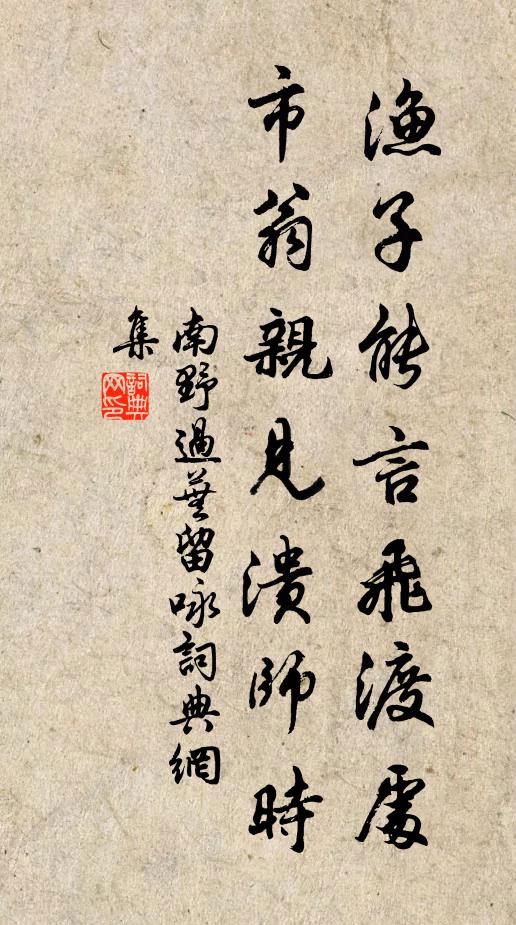 漁子能言飛渡處
市翁親見潰師時
南野過蕪留咏詞典網
集
詞典網印